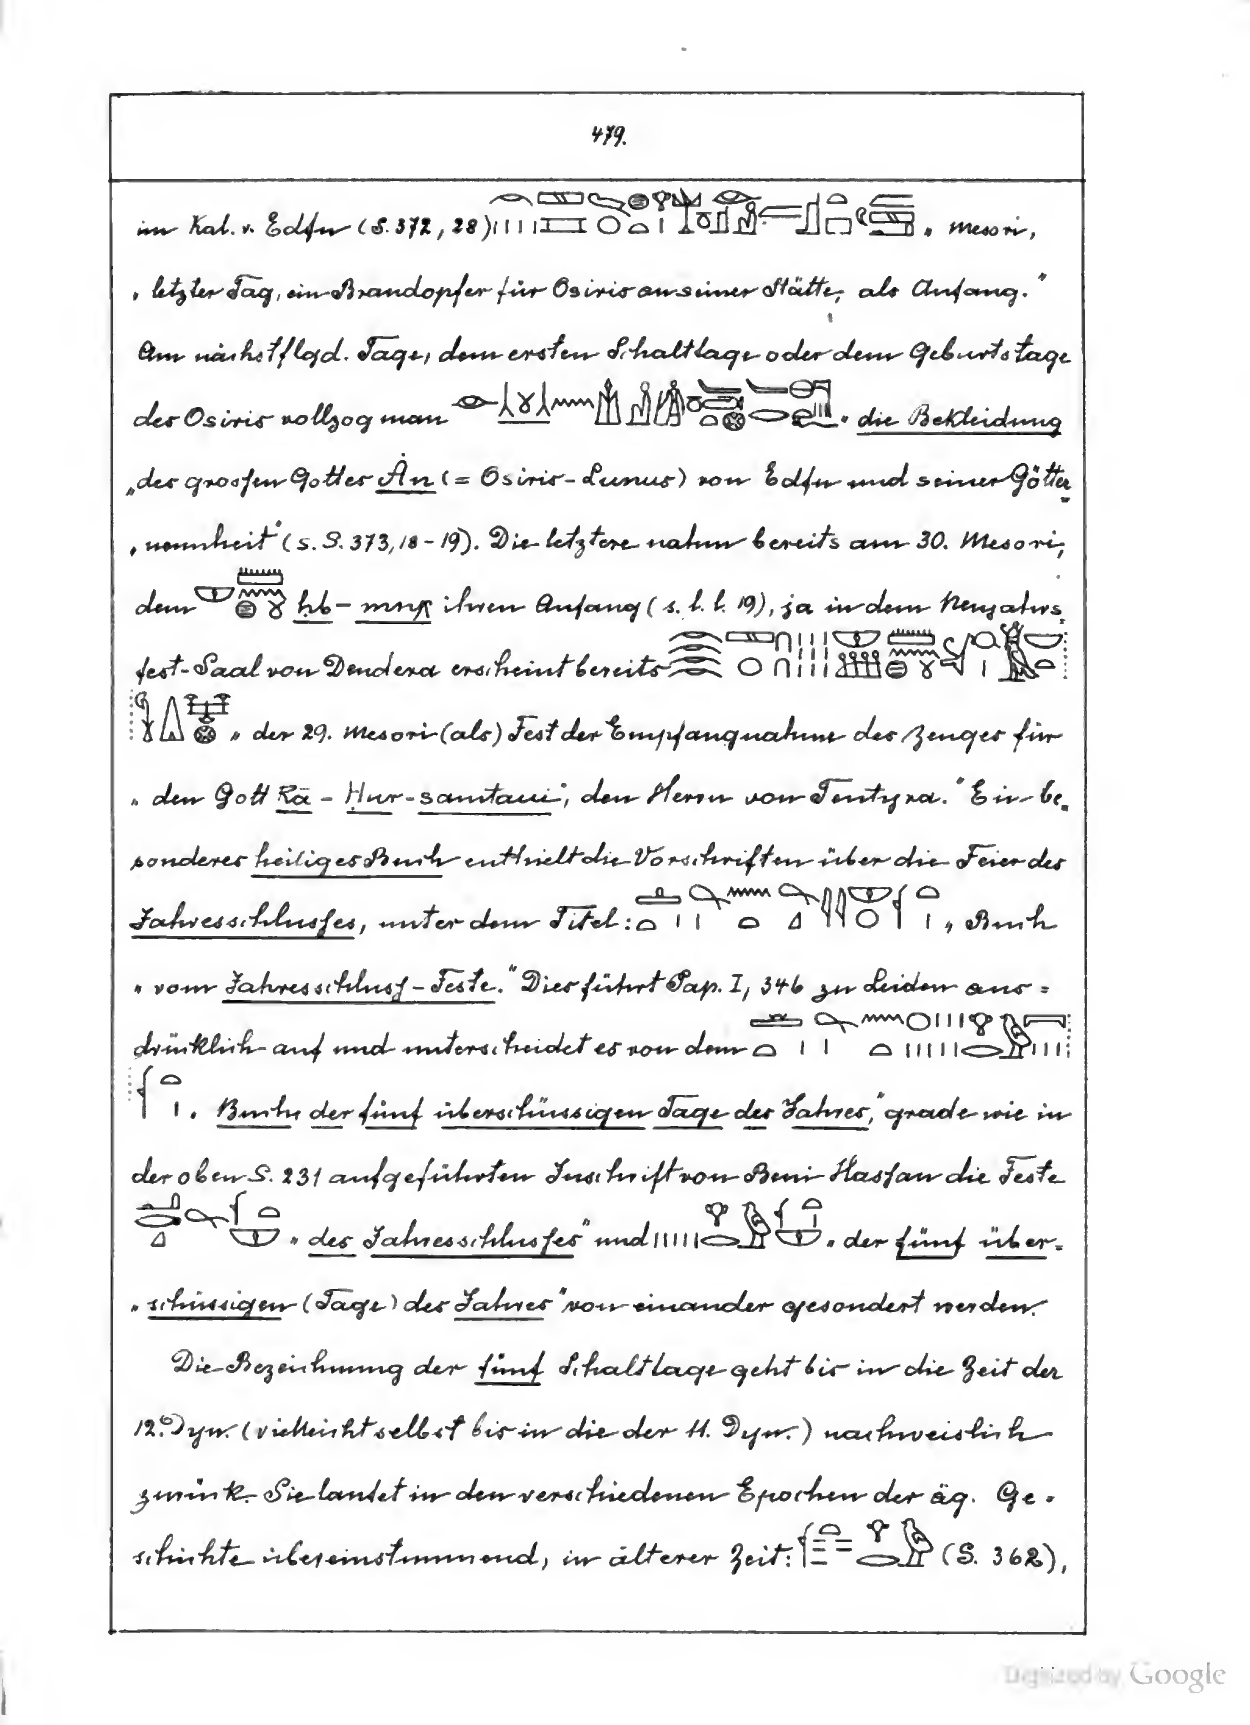 479.
im Kal. v. Edfu (S. 372, 28) „ Mesori,
„ letzter Tag, ein Brandopfer für Osiris an seiner Stätte, als Anfang.“
Am nächstflgd. Tage, dem ersten Schalttage oder dem Geburtstage
des Osiris vollzog man „ die Bekleidung
„ des grossen Gottes Ȧn (= Osiris-Lunus) von Edfu und seiner Götter
„ neunheit“ (s. S. 373, 18-19). Die letztere nahm bereits am 30. Mesori,
dem ḥb- ihren Anfang (s. l. l. 19), ja in dem Neujahrs
fest-Saal von Dendera erscheint bereits
„ der 29. Mesori (als) Fest der Empfangnahme des Zeuges für
„ den Gott Rā - Ḥur-samtaui“, den Herrn von Tentyra.“ Ein be-
sonderes heiliges Buch enthielt die Vorschriften über die Feier des
Jahresschlusses, unter dem Titel: „ Buch
„ vom Jahresschluss-Feste.“ Dies führt Pap. I, 346 zu Leiden aus=
drücklich auf und unterscheidet es von dem
„ Buche der fünf überschüssigen Tage des Jahres,“ grade wie in
der oben S. 231 aufgeführten Inschrift von Beni-Hassan die Feste
„ des Jahresschlusses“ und „ der fünf über-
„ schüssigen (Tage) des Jahres“ von einander gesondert werden.
Die Bezeichnung der fünf Schalttage geht bis in die Zeit der
12. Dyn. (vielleicht selbst bis in die der 11. Dyn.) nachweislich
zurück. Sie lautet in den verschiedenen Epochen der äg. Ge-
schichte übereinstimmend, in älterer Zeit: (S. 362),
Digitized by Google